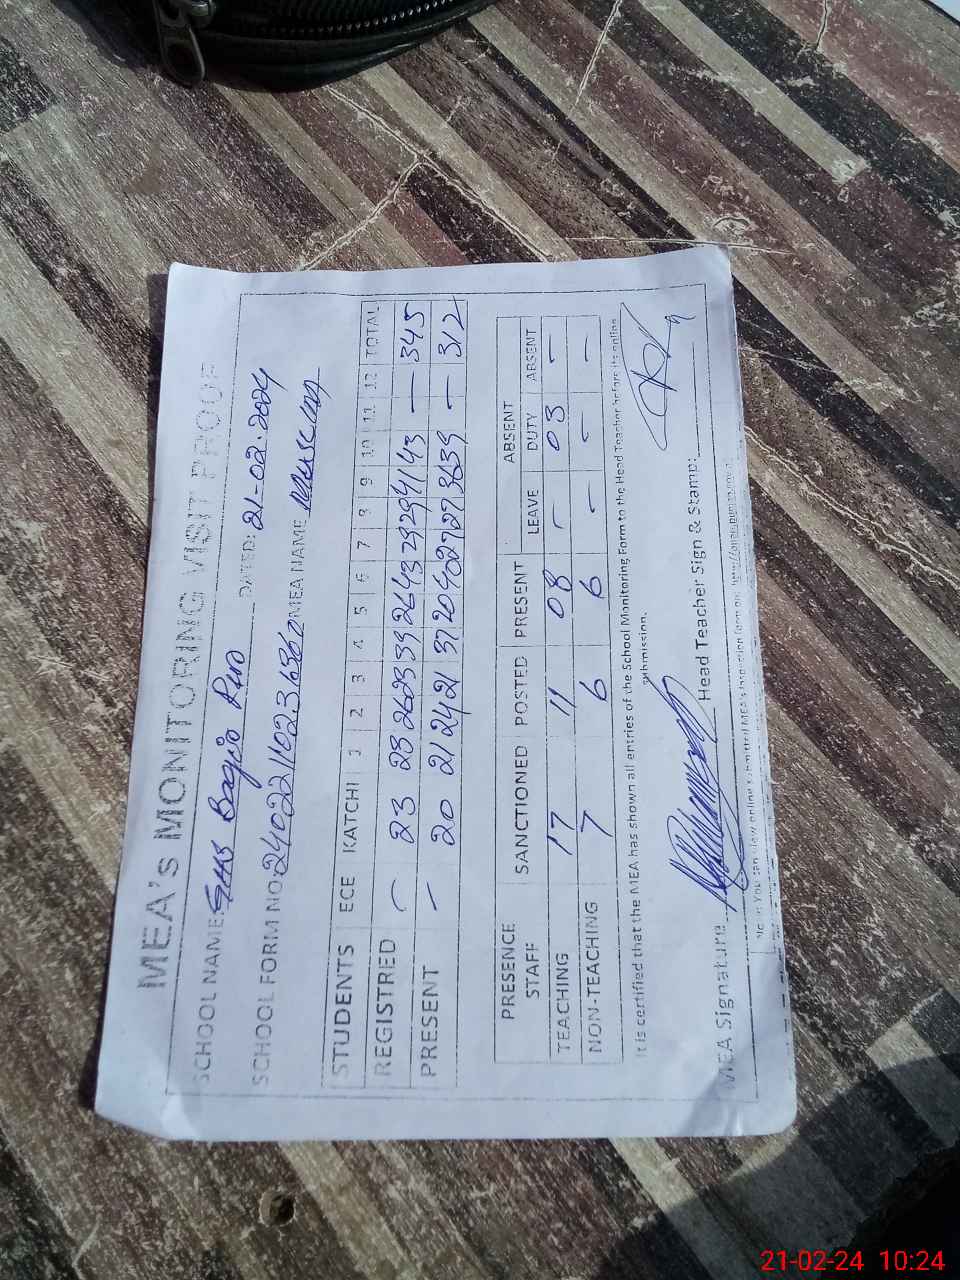 MEA's MONITORING VISIT PROOF
SCHOOL NAME: GHS DATED: 21-02-2024
SCHOOL FORM NO MEA NAME
STUDENTS ECE KATCHI 1 2 3 4 5 6 7 8 9 10 11 12 TOTAL
REGISTRIED - 23 23 26 23 39 26 43 29 29 41 43 - 345
PRESENT - 20 21 24 21 37 20 40 27 27 36 39 - 312
PRESENCE STAFF SANCTIONED POSTED PRESENT ABSENT
LEAVE DUTY ABSENT
TEACHING 17 11 08 - 03 -
NON-TEACHING 7 6 6 - - -
It is certified that the MEA has shown all entries of the School Monitoring Form to the Head Teacher before its online
submission.
MEA Signature Head Teacher Sign & Stamp:
Note: You can view online submitted MEA's inspection form on:
21-02-24 10:24